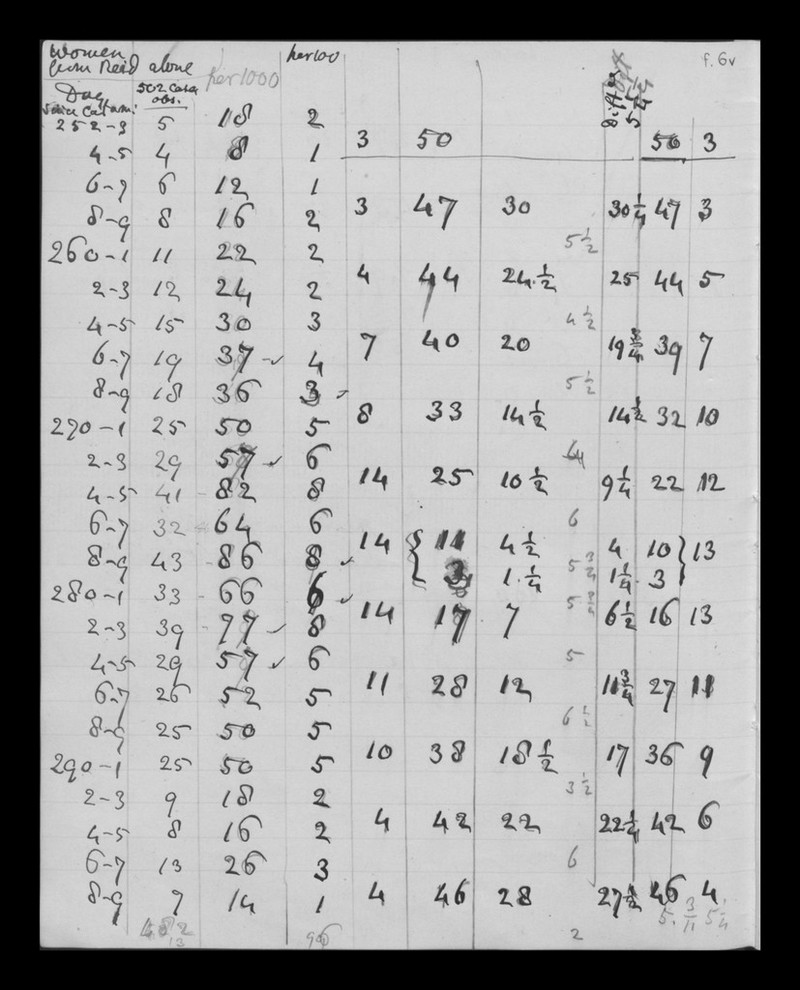 f. 6v
Women
from Reid alone per 1000 per 100
Day 502 cases
since Catam: obs.
252-3 5 18 2
3 50 50 3
4-5 4 8 1
6-7 6 12 1
3 47 30 30 1/4 47 3
8-9 8 16 2
5 1/2
260-1 11 22 2
4 44 24 1/2 25 44 5
2-3 12 24 2
4 1/2
4-5 15 30 3
7 40 20 19 3/4 39 7
6-7 19 37 4
5 1/2
8-9 18 36 3
8 33 14 1/2 14 1/2 32 10
270-1 25 50 5
2-3 29 57 6
14 25 10 1/2 9 1/4 22 12
4-5 41 - 82 8
6
6-7 32 64 6
14 { 11 4 1/2 4 10 } 13
8-9 43 - 86 8
5 3/4
3 1 1/4 1 1/4 3
280-1 33 - 66 6
5 3/4
14 17 7 6 1/2 16 13
2-3 39 - 77 8
5
4-5 29 57 6
11 28 12 11 3/4 27 11
6-7 26 52 5
6 1/2
8-9 25 50 5
10 38 18 1/2 17 36 9
290-1 25 50 5
3 1/2
2-3 9 18 2
4 42 22 22 1/4 42 6
4-5 8 16 2
6
6-7 13 26 3
4 46 28 27 1/2 46 4
8-9 7 14 1
482 96 2
13